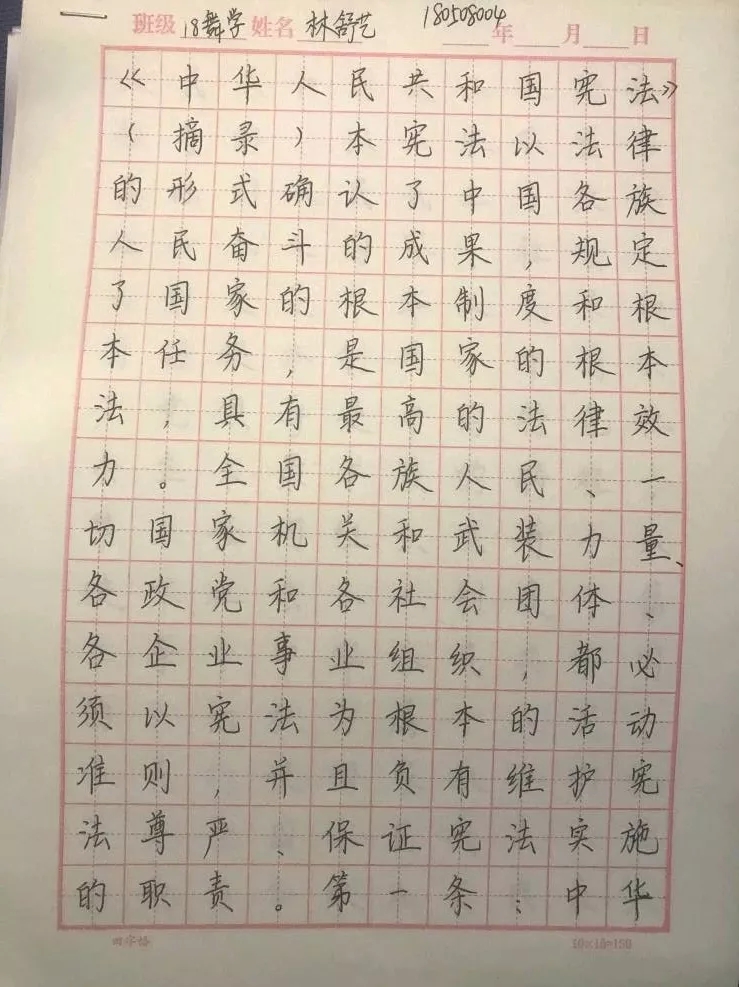 一 班级 18舞学 姓名 林舒艺 180508004 年 月 日
《中华人民共和国宪法》
（摘录）本宪法以法律
的形式确认了中国各族
人民奋斗的成果，规定
了国家的根本制度和根
本任务，是国家的根本
法，具有最高的法律效
力。全国各族人民、一
切国家机关和武装力量、
各政党和各社会团体、
各企业事业组织，都必
须以宪法为根本的活动
准则，并且负有维护宪
法尊严、保证宪法实施
的职责。第一条：中华
田字格